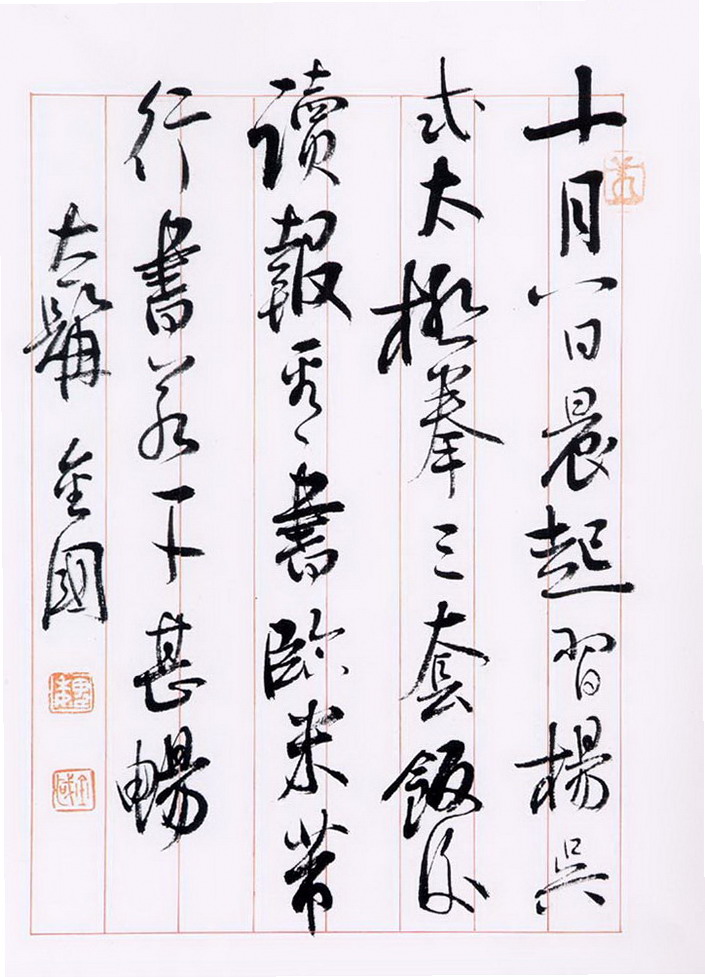 十月八日晨起習楊吳
式太極拳三套飯後
讀報看書臨米芾
行書若干甚暢
大鬍 金國